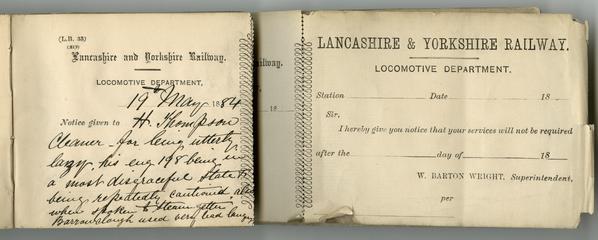 (L.B. 33)
Lancashire and Yorkshire Railway.
LOCOMOTIVE DEPARTMENT,
19th May 1884
Notice given to H. Thompson
Cleaner for being utterly
lazy, his eng 198 being in
a most disgraceful state &
being repeatedly cautioned also
when spoken to Steam getter
Barrowclough used very bad lang
ilway.
18
LANCASHIRE & YORKSHIRE RAILWAY.
LOCOMOTIVE DEPARTMENT.
Station Date 18
Sir,
I hereby give you notice that your services will not be required
after the day of 18
W. BARTON WRIGHT, Superintendent,
per